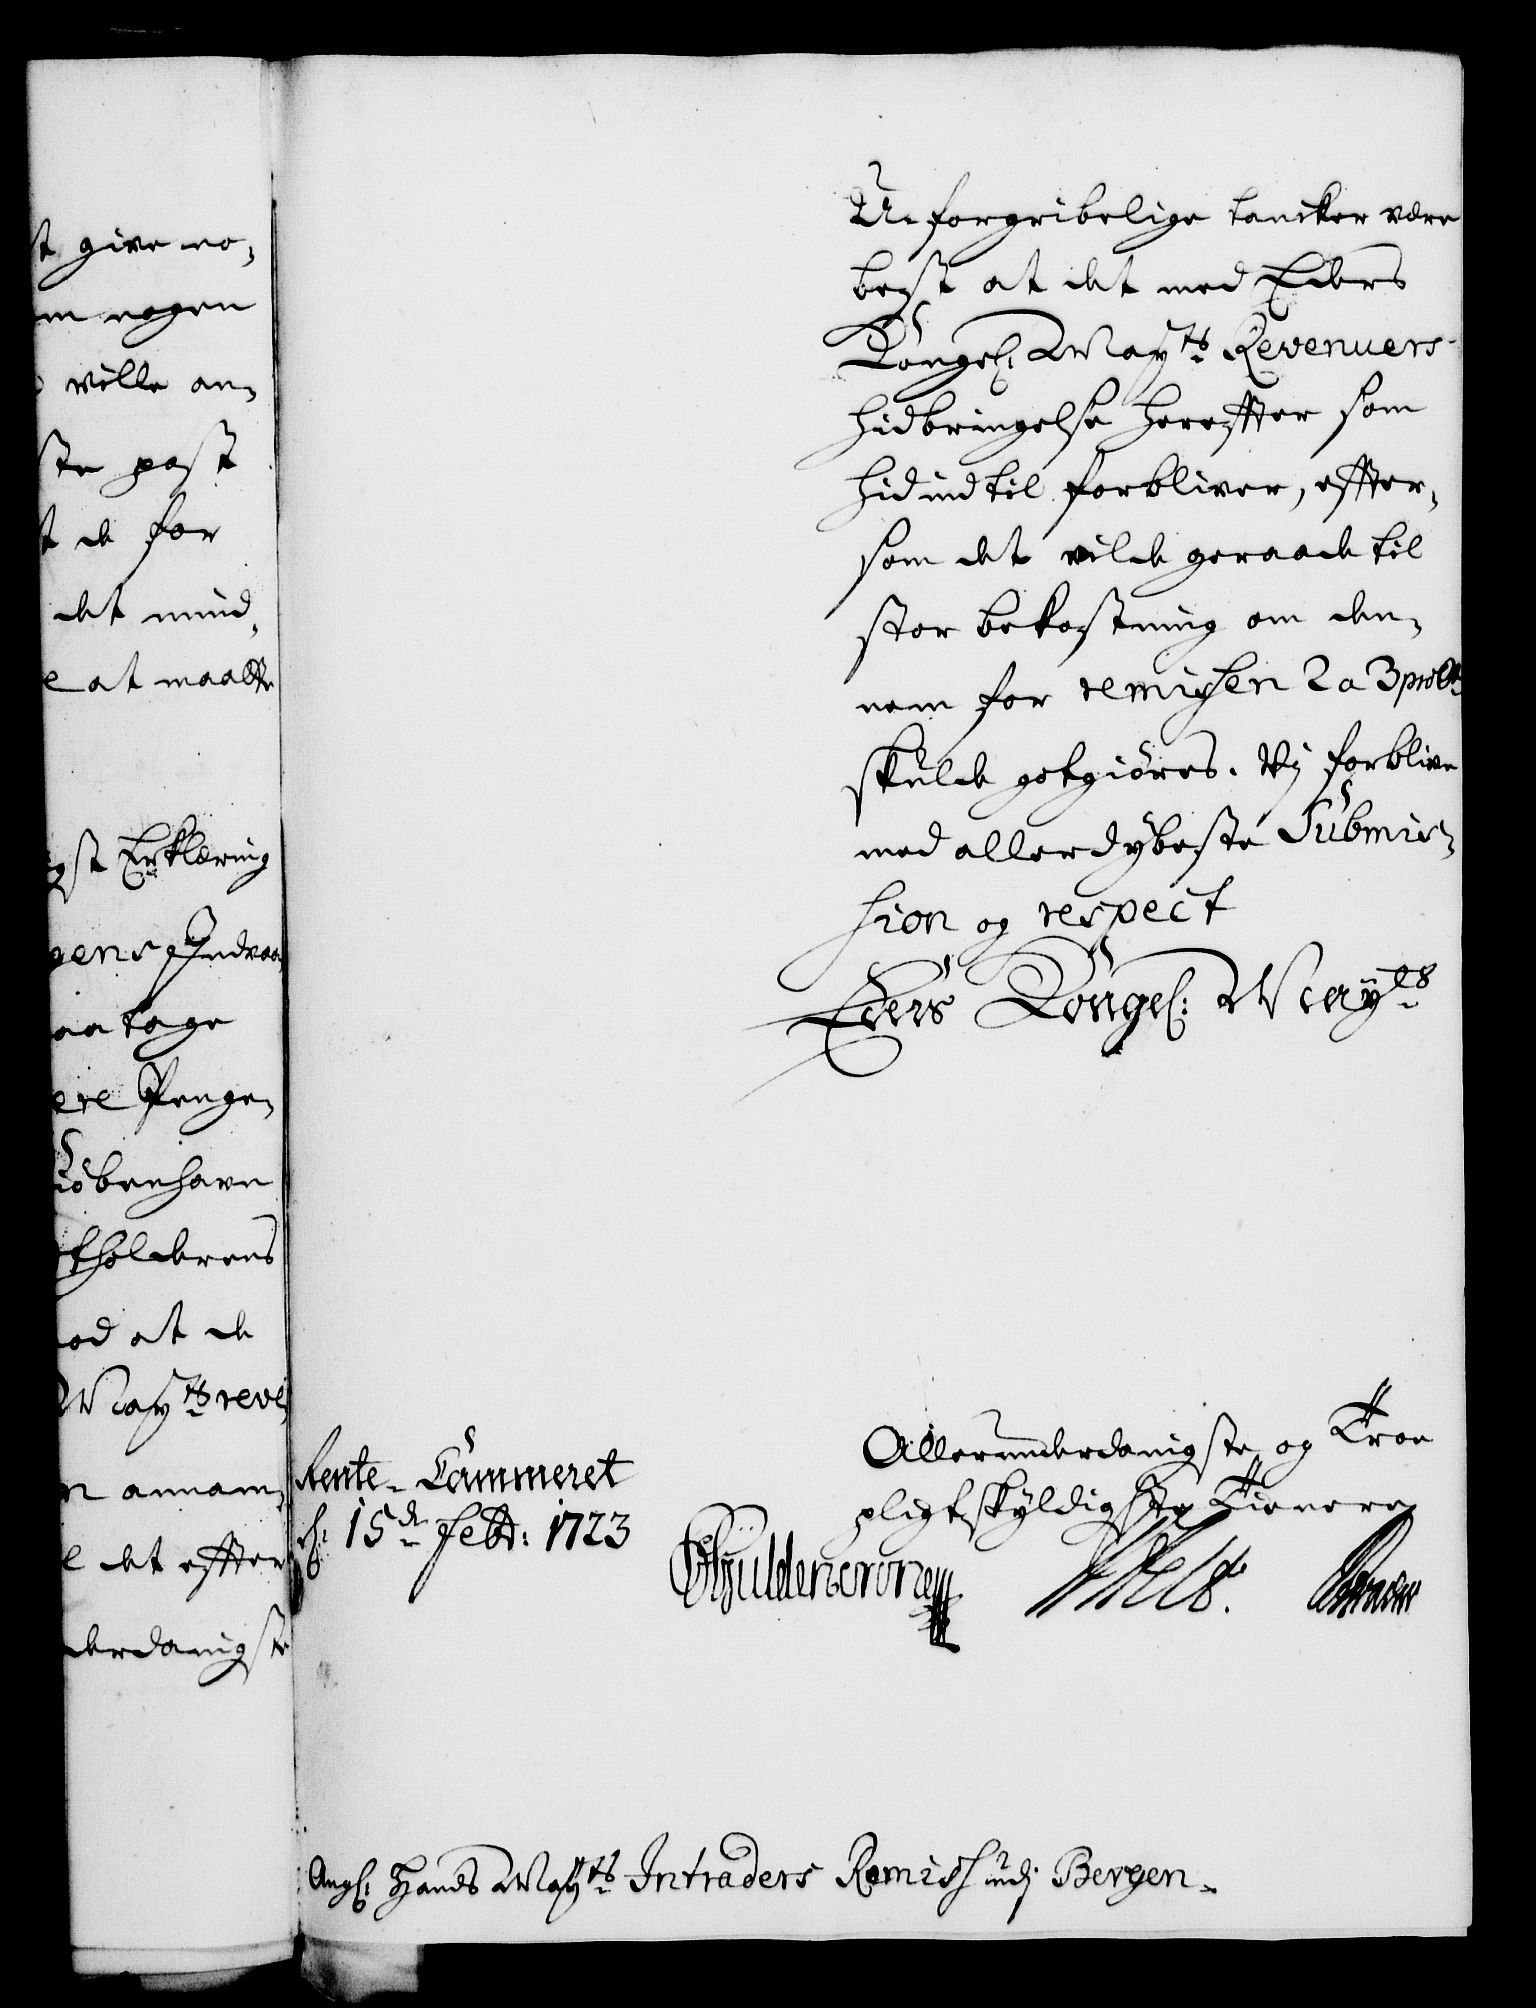 st give no-
m nogen
ville an-
ste post
t de for
det mind-
e at maatte
gst Erklæring
gens Indvaa
aa tage
ere Penge-
iöbenhavn
tholderens
od at de
Mayts reve
n annam-
l det effter
derdanigste
U-forgribelige tancker være
best at det med Eders
Kongel: Mayts Revenuers
hidbringelse hereffter som
hidindtil forbliver, effter-
som det vilde geraade til
stor bekostning om den-
nem for remissen 2 a 3 proCto
skulde gotgiöres. Vj forblive
med allerdybeste Submis-
sion og respect
Eders Kongel: Mayts
Allerunderdanigste og Troe
pligtskyldigste Tienere
Rente-Cammeret
d: 15de Febr: 1723
Gyldencrone
Ang: Hands Mayts Intraders Remiss udj Bergen.